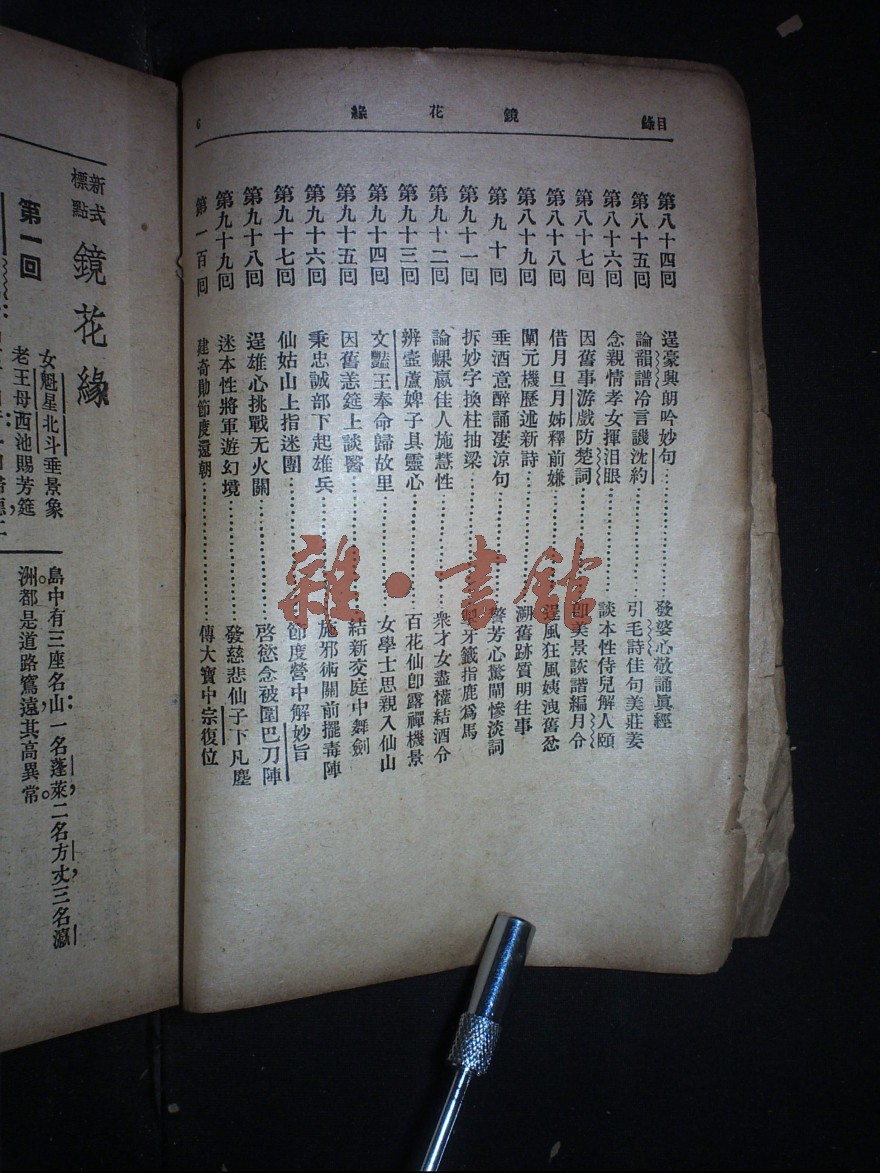 目錄
鏡花緣
6
第八十四回 逞豪興朗吟妙句……發婆心敬誦眞經
第八十五回 論韻譜冷言譏沈約……引毛詩佳句美莊姜
第八十六回 念親情孝女揮泪眼……談本性侍兒解人頤
第八十七回 因舊事游戲防楚詞……卽美景詼諧編月令
第八十八回 借月旦月姊釋前嫌……逞風狂風姨洩舊忿
第八十九回 闡元機歷述新詩……溯舊跡質明往事
第九十回 乘酒意醉誦凄涼句……警芳心驚聞慘淡詞
第九十一回 拆妙字換柱抽梁……牙籤指鹿爲馬
第九十二回 論蜾蠃佳人施慧性……
第九十三回 辨壺蘆婢子具靈心……百花仙卽露禪機景
衆才女盡懽結酒令
第九十四回 文豔王奉命歸故里……女學士思親入仙山
第九十五回 因舊恙筵上談醫……結新交庭中舞劍
第九十六回 秉忠誠部下起雄兵……施邪術關前擺毒陣
第九十七回 仙姑山上指迷團……節度營中解妙旨
第九十八回 逞雄心挑戰无火關……啓慾念被圍巴刀陣
第九十九回 迷本性將軍遊幻境……發慈悲仙子下凡塵
第一百回 建奇勛節度還朝……傳大寶中宗復位
新式標點 鏡花緣
第一回
女魁星北斗垂景象
老王母西池賜芳筵
島中有三座名山：一名蓬萊，二名方丈，三名瀛
洲。都是道路窵遠，其高異常。
雜·書館